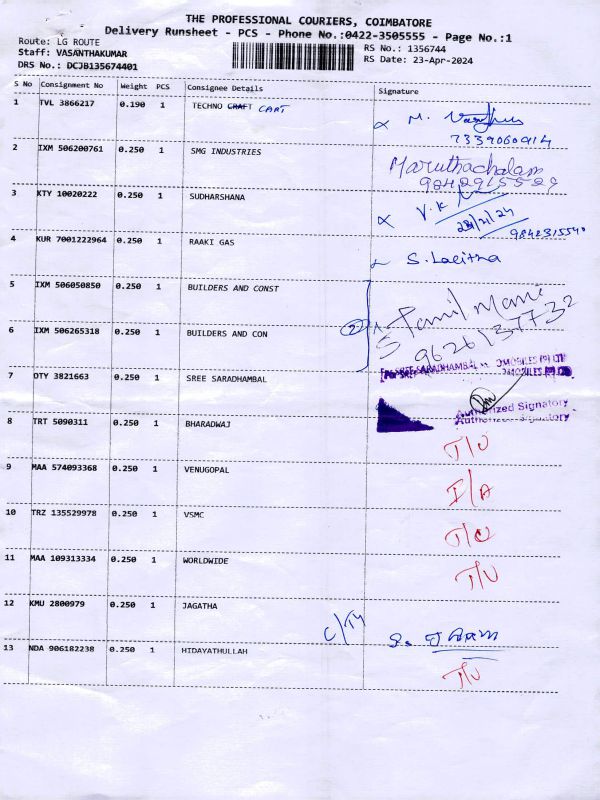 THE PROFESSIONAL COURIERS, COIMBATORE
Delivery Runsheet - PCS - Phone No.:0422-3505555 - Page No.:1
Route: LG ROUTE RS No.: 1356744
Staff: VASANTHAKUMAR RS Date: 23-Apr-2024
DRS No.: DCJB135674401
S No Consignment No Weight PCS Consignee Details Signature
1 TVL 3866217 0.190 1 TECHNO CRAFT CART M.
7339060914
2 IXM 506200761 0.250 1 SMG INDUSTRIES Maruthachalam
9842915529
3 KTY 10020222 0.250 1 SUDHARSHANA V.K
9842315540
4 KUR 7001222964 0.250 1 RAAKI GAS S. Lalitha
5 IXM 506050850 0.250 1 BUILDERS AND CONST
S Tamil Mani
6 IXM 506265318 0.250 1 BUILDERS AND CON 2
9626137732
7 DTY 3821663 0.250 1 SREE SARADHAMBAL
Authorized Signatory
8 TRT 5090311 0.250 1 BHARADWAJ
9 MAA 574093368 0.250 1 VENUGOPAL I/A
10 TRZ 135529978 0.250 1 VSMC
11 MAA 109313334 0.250 1 WORLDWIDE
12 KMU 2800979 0.250 1 JAGATHA
13 NDA 906182238 0.250 1 HIDAYATHULLAH